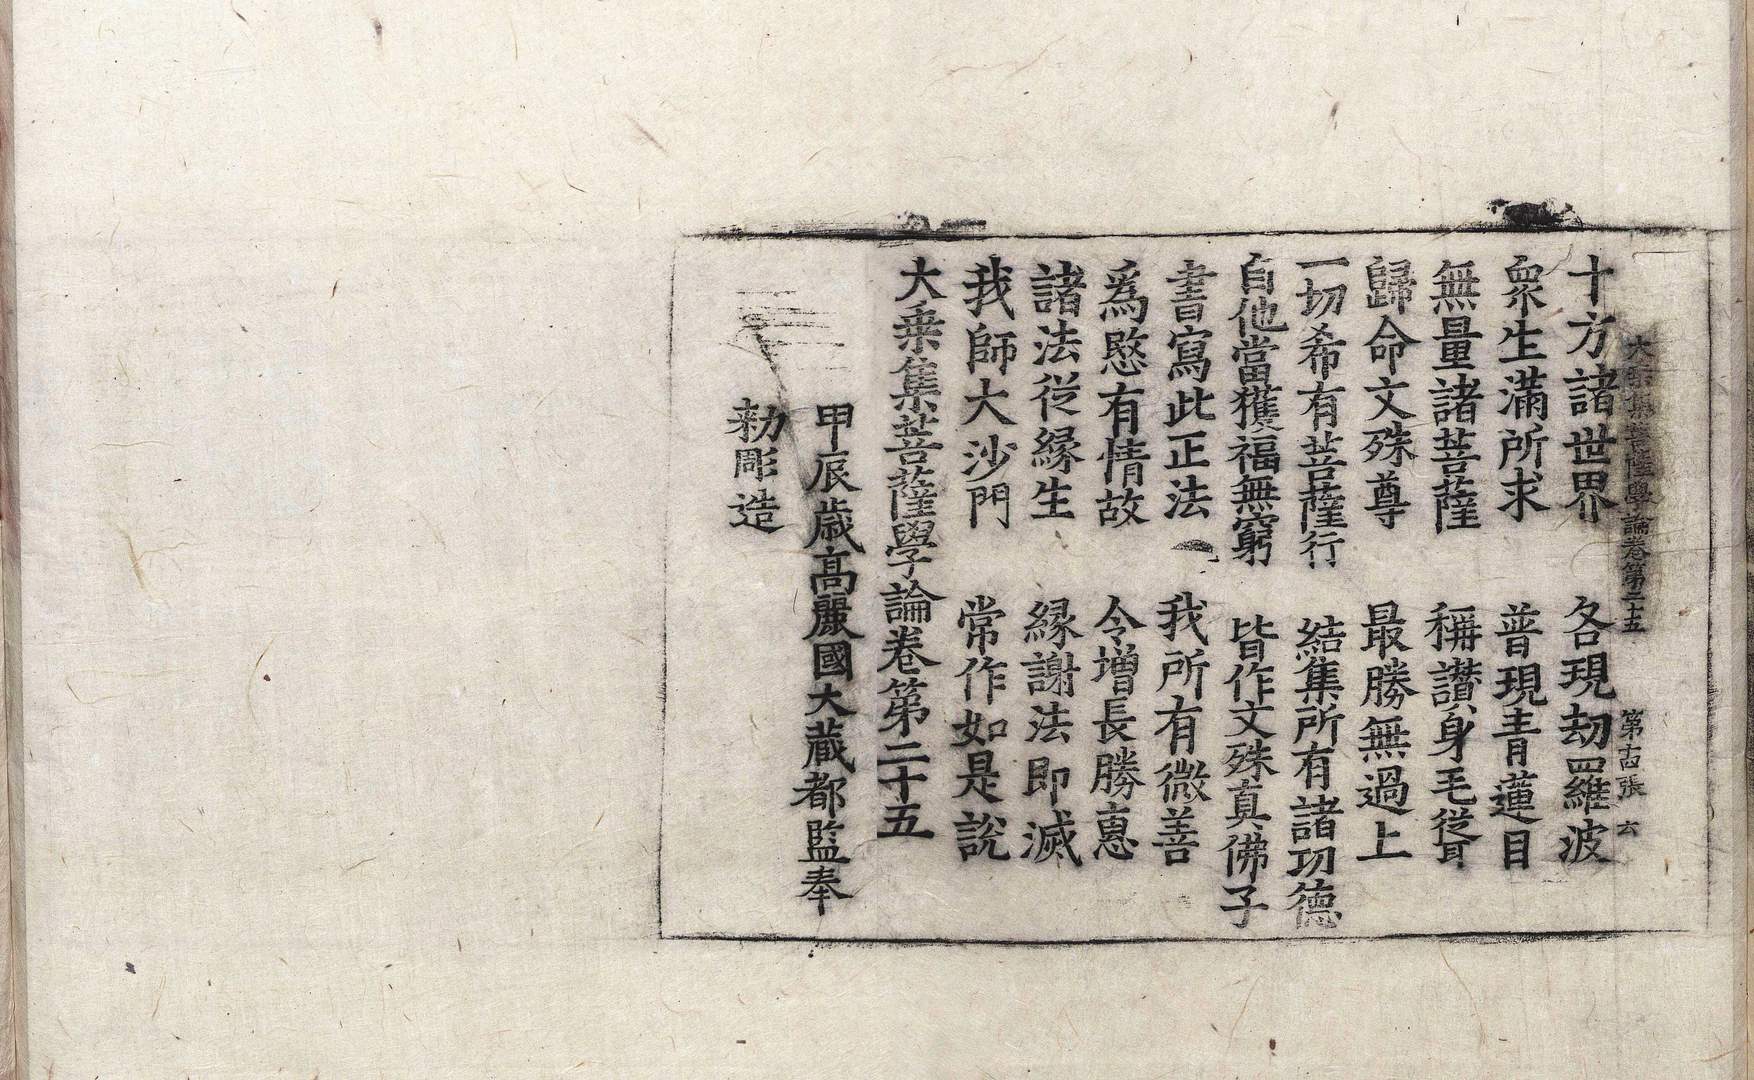 大乘集菩薩學論卷第二十五　第十四張　六
十方諸世界　各現劫羅波
衆生滿所求　普現青蓮目
無量諸菩薩　稱讃身毛從耳
歸命文殊尊　最勝無過上
一切希有菩薩行　結集所有諸功德
自他當獲福無窮　皆作文殊真佛子
書寫此正法　我所有微善
爲愍有情故　令增長勝惠
諸法從緣生　緣謝法即滅
我師大沙門　常作如是說
大乘集菩薩學論卷第二十五
甲辰歲高麗國大藏都監奉
勅彫造